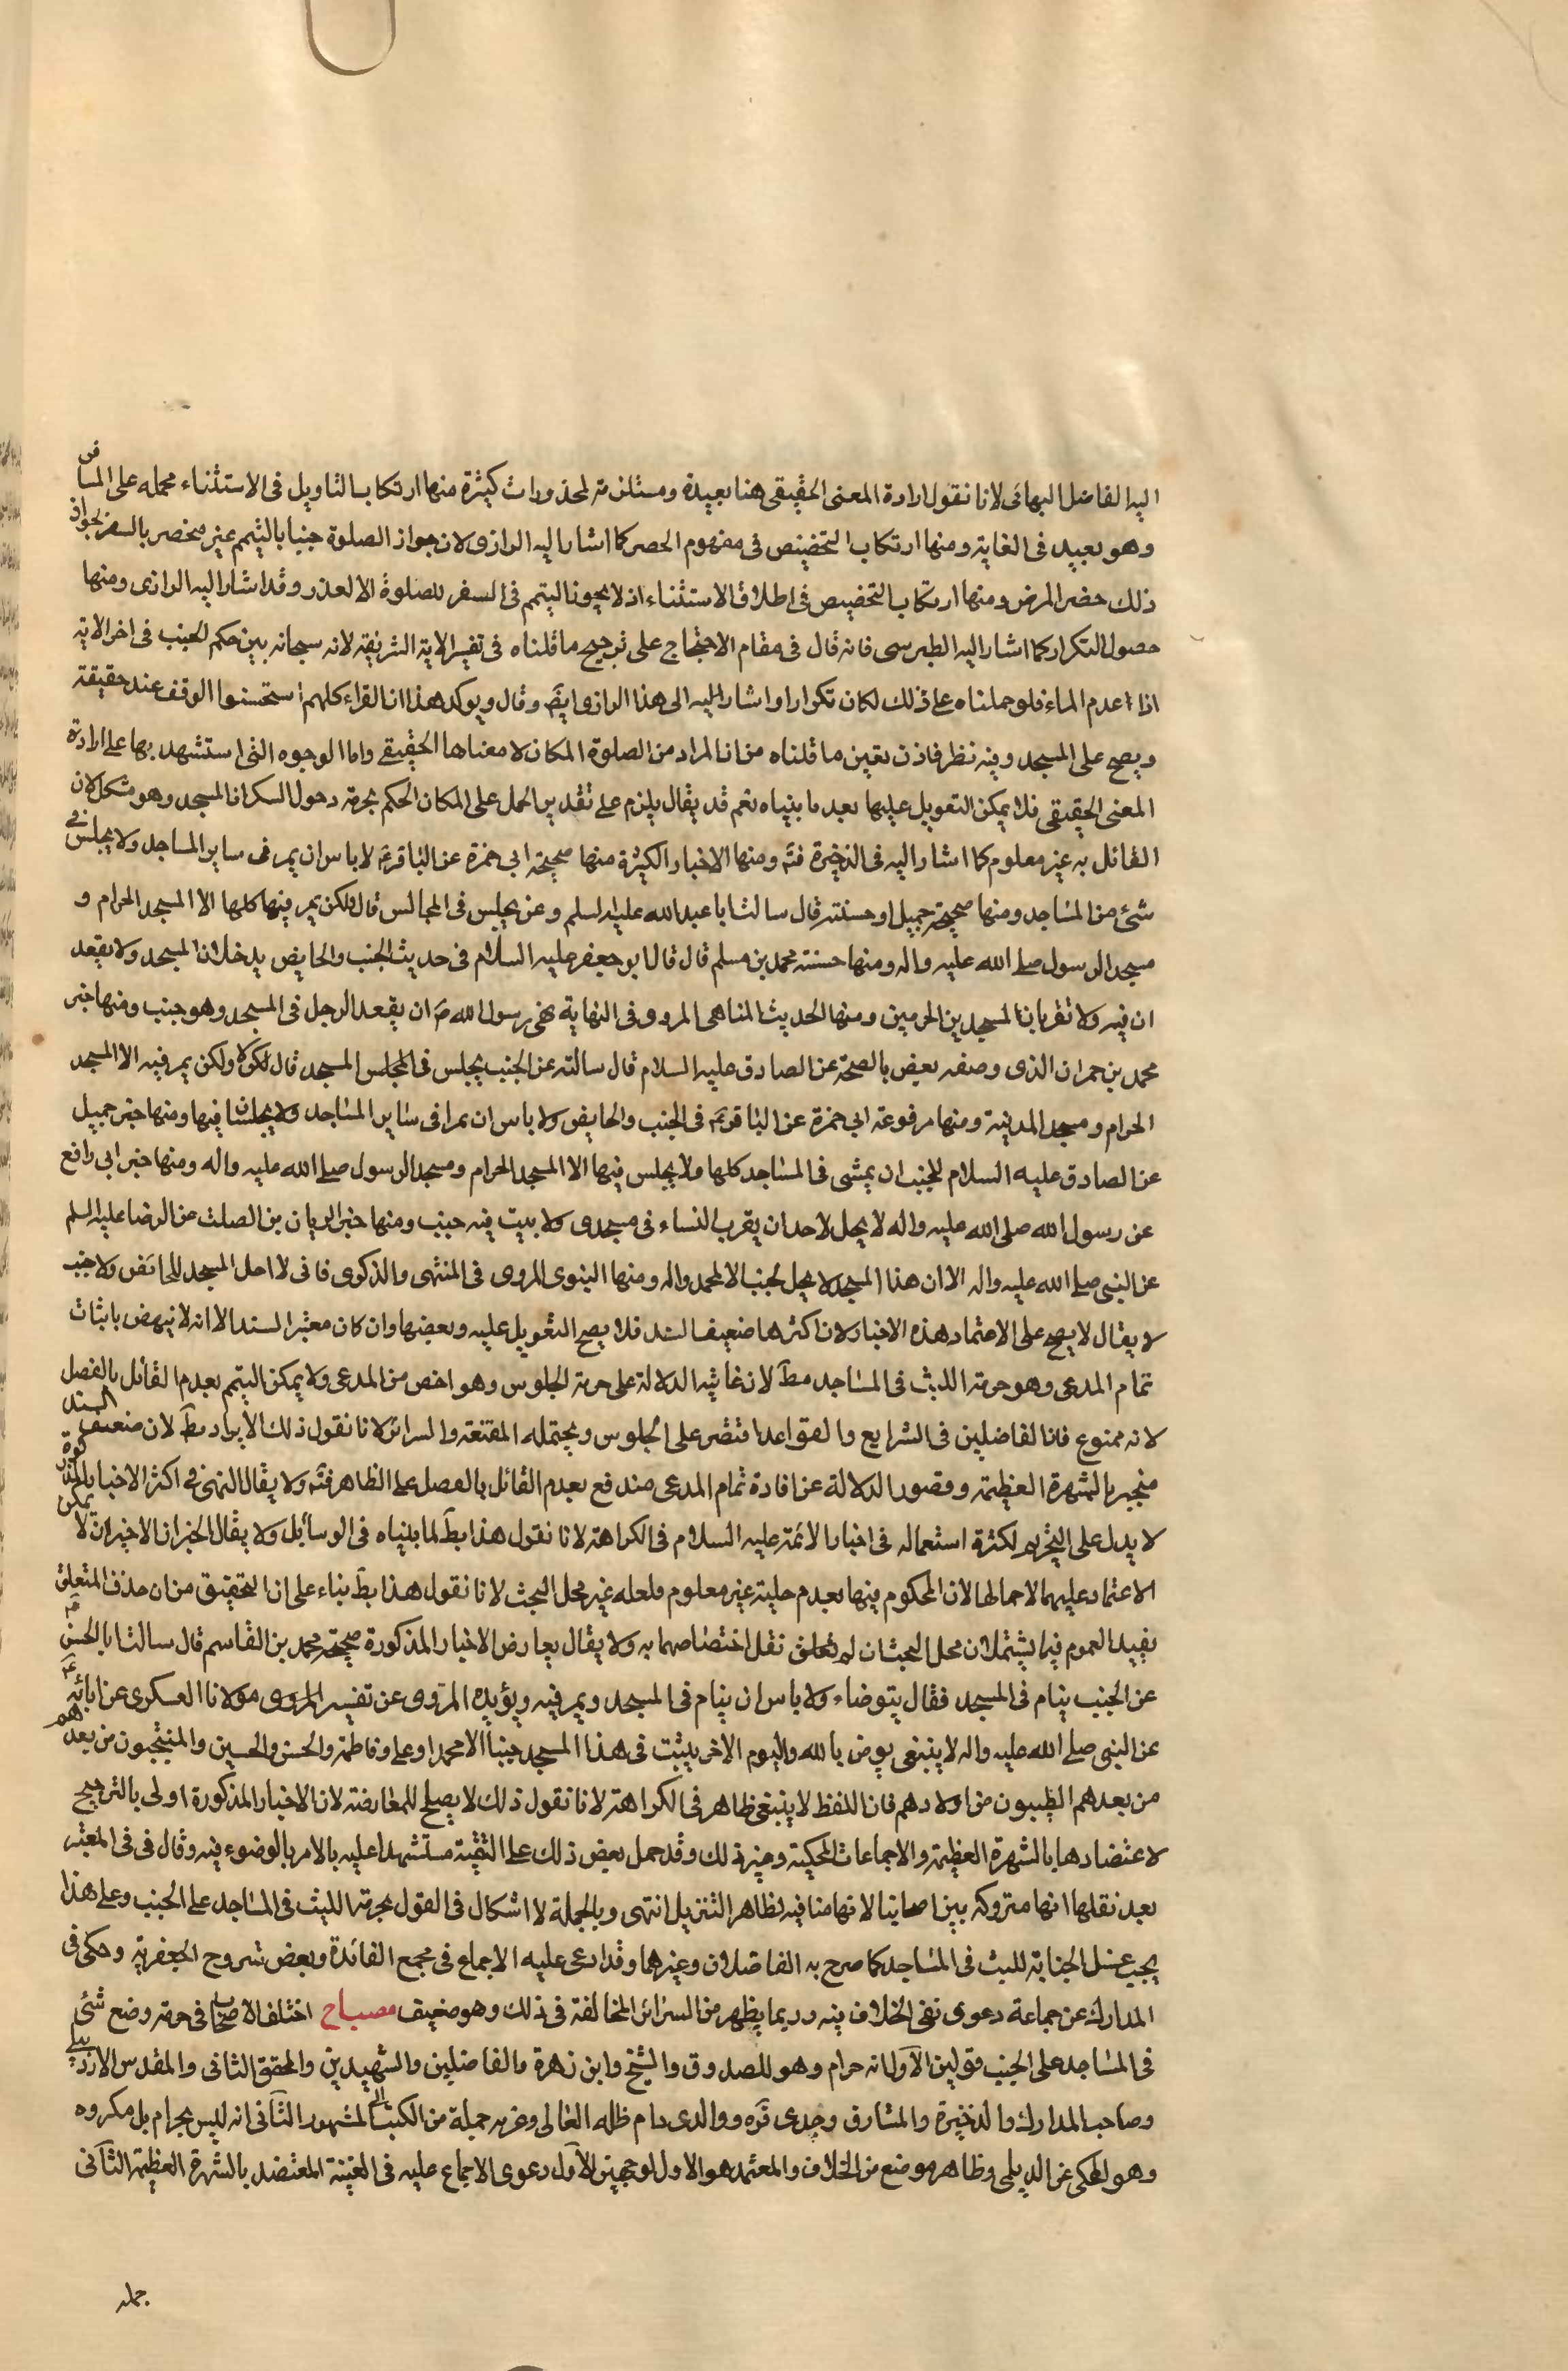 اليه الفاضل البهائى لانا نقول ارادة المعنى الحقيقى هنا بعيدة ومستلزمة لمحذورات كثيرة منها ارتكاب التاويل فى الاستثناء بحمله على المسافر
وهو بعيد فى الغاية ومنها ارتكاب التخصيص فى مفهوم الحصر كما اشار اليه الرازى لان جواز الصلوة جنبا بالتيمم غير منحصر بالسفر لجواز
ذلك حضر المرض ومنها ارتكاب التخصيص فى اطلاق الاستثناء اذ لا يجوز التيمم فى السفر للصلوة الا لعذر وقد اشار اليه الرازى ومنها
حصول التكرار كما اشار اليه الطبرسى فانه قال فى مقام الاحتجاج على ترجيح ما قلناه فى تفسير الاية الشريفة لانه سبحانه بين حكم الجنب فى اخر الاية
اذا عدم الماء فلو حملناه على ذلك لكان تكرارا واشار اليه الى هذا الرازى ايضا وقال ويوكد هذا ان القراء كلهم استحسنوا الوقف عند حقيقة
ويصح على المسجد وفيه نظر فاذن تعين ما قلناه من ان المراد من الصلوة المكان لا معناها الحقيقى واما الوجوه التى استشهد بها على ارادة
المعنى الحقيقى فلا يمكن التعويل عليها بعد ما بيناه نعم قد يقال يلزم على تقدير الحمل على المكان الحكم بحرمة دخول السكران المسجد وهو مشكل لان
القائل به غير معلوم كما اشار اليه فى الذخيرة فتم ومنها الاخبار الكثيرة منها صحيحة ابى حمزة عن الباقر عم لا باس ان يمر فى ساير المساجد ولا يجلس فى
شئ من المساجد ومنها صحيحة جميل او حسنته قال سالت ابا عبد الله عليه السلم وعن يجلس فى المجالس قال ولكن يمر فيها كلها الا المسجد الحرام و
مسجد الرسول صلى الله عليه واله ومنها حسنة محمد بن مسلم قال قال ابو جعفر عليه السلام فى حديث الجنب والحايض يدخلان المسجد ولا يقعد
ان فيه ولا تقربان المسجدين الحرمين ومنها الحديث المناهى المروى فى النهاية نهى رسول الله ص ان يقعد الرجل فى المسجد وهو جنب ومنها خبر
محمد بن حمران الذى وصفه بعض بالصحة عن الصادق عليه السلام قال سالته عن الجنب يجلس فى المجلس المسجد قال لا ولكن يمر فيه الا المسجد
الحرام ومسجد المدينة ومنها مرفوعة ابى حمزة عن الباقر عم فى الجنب والحايض ولا باس ان يمرا فى ساير المساجد ولا يجلسان فيها ومنها خبر جميل
عن الصادق عليه السلام للجنب ان يمشى فى المساجد كلها ولا يجلس فيها الا المسجد الحرام ومسجد الرسول صلى الله عليه واله ومنها خبر ابى رافع
عن رسول الله صلى الله عليه واله لا يحل لاحد ان يقرب النساء فى مسجدى ولا يبيت فيه جنب ومنها خبر الريان بن الصلت عن الرضا عليه السلم
عن النبى صلى الله عليه واله الا ان هذا المسجد لا يحل لجنب الا لمحمد واله ومنها النبوى المروى فى المنتهى والذكرى فانى لا احل المسجد للحائض ولا جنب
لا يقال لا يصح على الاعتماد هذه الاخبار لان اكثرها ضعيف السند فلا يصح التعويل عليه وبعضها وان كان معتبر السند الا انه لا ينهض باثبات
تمام المدعى وهو حرمة اللبث فى المساجد مط لان غايته الدلالة على حرمة الجلوس وهو اخص من المدعى ولا يمكن التيمم بعدم القائل بالفصل
لانه ممنوع فان الفاضلين فى الشرايع والقواعد اقتصر على الجلوس ويحتمله المقنعة والسرائر لانا نقول ذلك الايراد مط لان ضعف السند
منجبر بالشهرة العظيمة وقصور الدلالة عن افادة تمام المدعى مندفع بعدم القائل بالفصل على الظاهر فتم ولا يقال النهى فى اكثر الاخبار المذكورة
لا يدل على التحريم لكثرة استعماله فى اخبار الائمة عليه السلام فى الكراهة لانا نقول هذا بط لما بيناه فى الوسائل ولا يقال الخبران الاخيران لا يمكن
الاعتماد عليهما لاجمالها لان المحكوم فيها بعدم حليته غير معلوم فلعله غير محل البحث لانا نقول هذا بط بناء على ان التحقيق من ان حذف المتعلق
يفيد العموم فيما يشتملان محل البحث ان لم نقل اختصاصهما به ولا يقال يعارض الاخبار المذكورة صحيحة محمد بن القاسم قال سالت ابا الحسن عم
عن الجنب ينام فى المسجد فقال يتوضاء ولا باس ان ينام فى المسجد ويمر فيه ويؤيده المروى عن تفسير المروى مولانا العسكرى عن ابائه عم
عن النبى صلى الله عليه واله لا ينبغى يومن بالله واليوم الاخر يبيت فى هذا المسجد جنبا الا محمد او على وفاطمة والحسن والحسين والمنتجبون من بعدهم
من بعدهم الطيبون من اولادهم فان اللفظ لا ينبغى ظاهر فى الكراهة لانا نقول ذلك لا يصلح للمعارضة لان الاخبار المذكورة اولى بالترجيح
لاعتضادها بالشهرة العظيمة والاجماعات المحكية وغير ذلك وقد حمل بعض ذلك على التقية مستشهدا عليه بالامر بالوضوء فيه وقال فى فى المعتبر
بعد نقلها انها متروكة بين اصحابنا لانها منافيه لظاهر التنزيل انتهى وبالجملة لا اشكال فى القول بحرمة اللبث فى المساجد على الجنب وعلى هذا
يجب غسل الجنابة للبث فى المساجد كما صرح به الفاضلان وغيرهما وقد ادعى عليه الاجماع فى مجمع الفائدة وبعض شروح الجعفرية وحكى فى
المدارك عن جماعة دعوى نفى الخلاف فيه وربما يظهر من السرائر المخالفة فى ذلك وهو ضعيف مصباح اختلف الاصحاب فى حرمة وضع شئ
فى المساجد على الجنب قولين الاول انه حرام وهو للصدوق والشيخ وابن زهرة والفاضلين والشهيدين والمحقق الثانى والمقدس الاردبيلى
وصاحب المدارك والذخيرة والمشارق وجدى قره ووالدى دام ظله العالى وغيره جملة من الكتب المشهور الثانى انه ليس بحرام بل مكروه
وهو المحكى عن الديلمى وظاهر موضع من الخلاف والمعتمد هو الاول لوجهين الاول دعوى الاجماع عليه فى الغنية المعتضد بالشهرة العظيمة الثانى
جمله